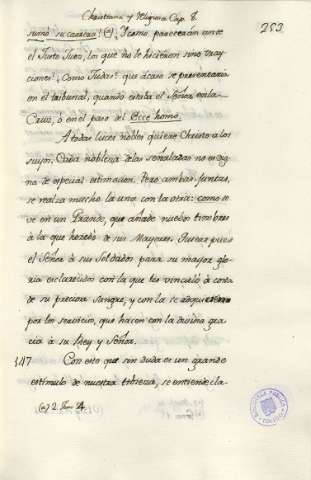 Christiana y Religiosa Cap. 8.
253
sumó su caridad! (a). Y como parecerán ante
el Juste Juez, los que no le hicieron sino tray-
ciones! Como Judas! que acaso se presentaria
en el tribunal, quando estaba el Señor en la
Cruz, ó en el paso del Ecce homo.
A todas luces nobles quiere Christo a los
suyos. Cada nobleza de las señaladas no es dig-
na de especial estimacion. Pero ambas juntas,
se realza mucho la una con la otra: como se
ve en un Grande, que añade nuebos timbres
à la que heredó de sus Mayores. Quiere pues
el Señor à sus Soldados para su mayor glo-
ria esclarecidos con la que les vinculó à costa
de su preciosa Sangre, y con la se adquirieren
por los servicios, que hacen con la divina gra-
cia à su Rey y Señor.
147 Con esto que sin duda es un grande
estimulo de nuestra tibieza, se entiende cla-
(a) 2. Tim. 4.
BIBLIOTECA PUBLICA
TOLEDO